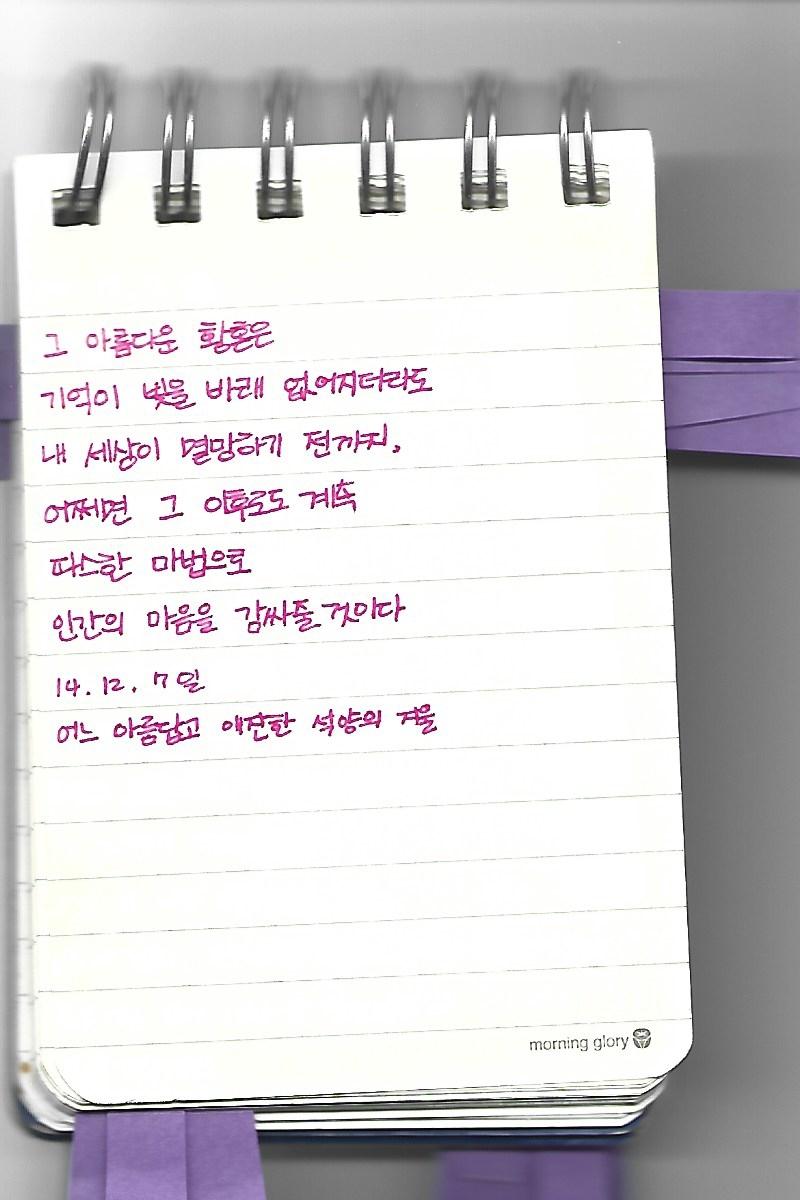 그 아름다운 황혼은
기억이 빛을 바래 없어지더라도
내 세상이 멸망하기 전까지,
어쩌면 그 이후로도 계속
따스한 마법으로
인간의 마음을 감싸줄 것이다
14. 12. 7일
어느 아름답고 애잔한 석양의 겨울
morning glory